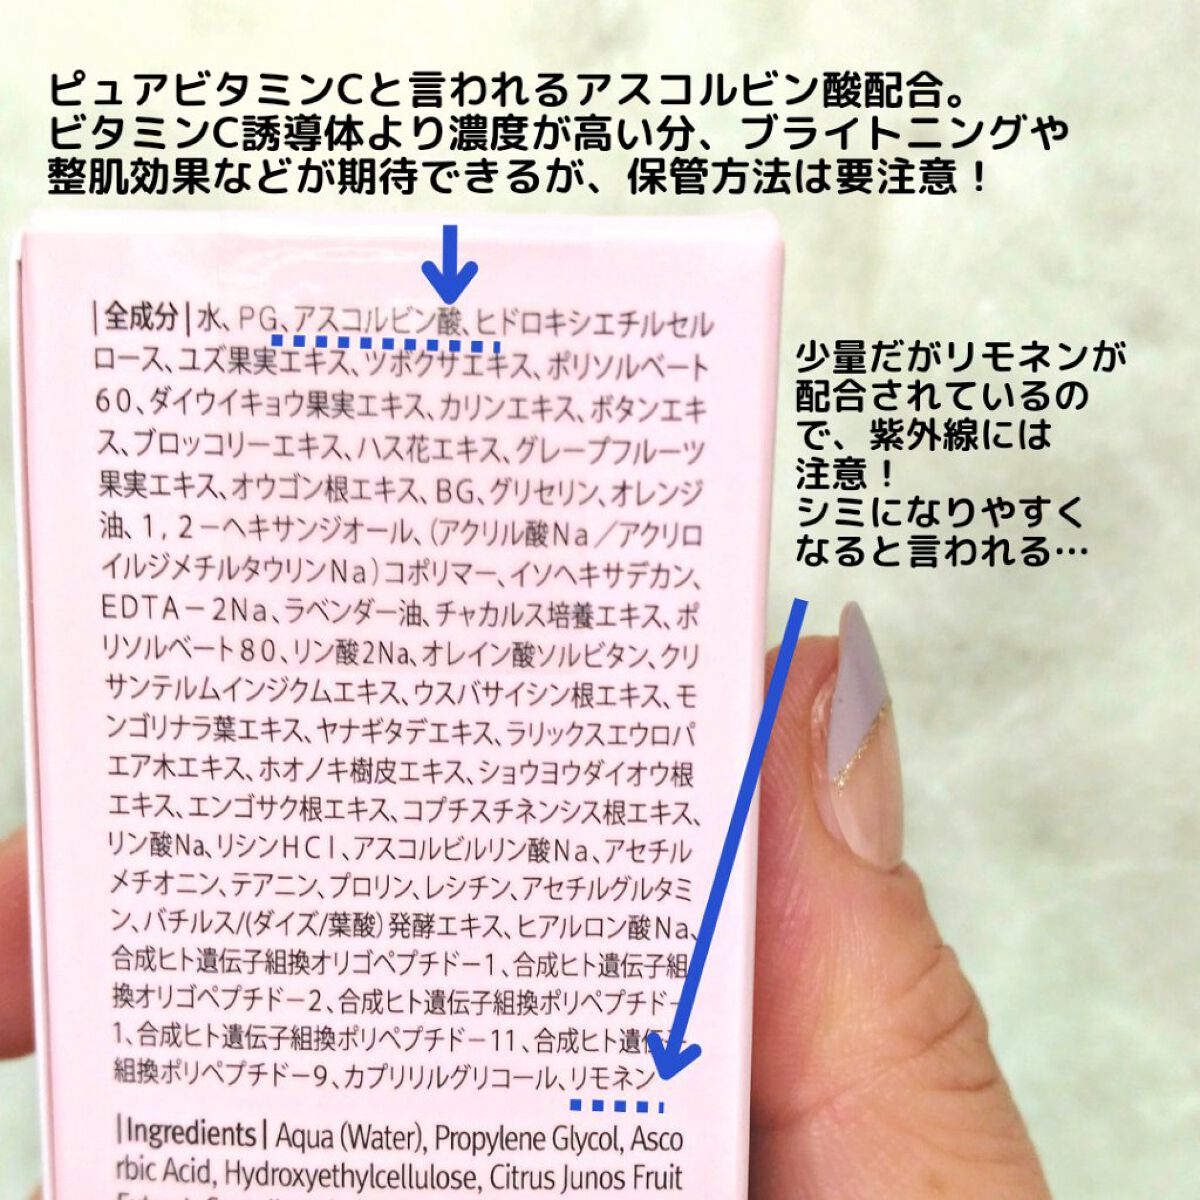 ピュアビタミンCと言われるアスコルビン酸配合。
ビタミンC誘導体より濃度が高い分、ブライトニングや
整肌効果などが期待できるが、保管方法は要注意！
|全成分|水、PG、アスコルビン酸、ヒドロキシエチルセル
ロース、ユズ果実エキス、ツボクサエキス、ポリソルベート
60、ダイウイキョウ果実エキス、カリンエキス、ボタンエキ
ス、ブロッコリーエキス、ハス花エキス、グレープフルーツ
果実エキス、オウゴン根エキス、BG、グリセリン、オレンジ
油、1,2－ヘキサンジオール、(アクリル酸Na／アクリロ
イルジメチルタウリンNa)コポリマー、イソヘキサデカン、
EDTA－2Na、ラベンダー油、チャカルス培養エキス、ポ
リソルベート80、リン酸2Na、オレイン酸ソルビタン、クリ
サンテルムインジクムエキス、ウスバサイシン根エキス、モ
ンゴリナラ葉エキス、ヤナギタデエキス、ラリックスエウロパ
エア木エキス、ホオノキ樹皮エキス、ショウヨウダイオウ根
エキス、エンゴサク根エキス、コプチスチネンシス根エキス、
リン酸Na、リシンHCl、アスコルビルリン酸Na、アセチル
メチオニン、テアニン、プロリン、レシチン、アセチルグルタミ
ン、バチルス/(ダイズ/葉酸)発酵エキス、ヒアルロン酸Na、
合成ヒト遺伝子組換オリゴペプチド－1、合成ヒト遺伝子組
換オリゴペプチド－2、合成ヒト遺伝子組換ポリペプチド－
1、合成ヒト遺伝子組換ポリペプチド－11、合成ヒト遺伝子
組換ポリペプチド－9、カプリリルグリコール、リモネン
|Ingredients| Aqua (Water), Propylene Glycol, Asco
rbic Acid, Hydroxyethylcellulose, Citrus Junos Fruit
少量だがリモネンが
配合されているの
で、紫外線には
注意！
シミになりやすく
なると言われる…